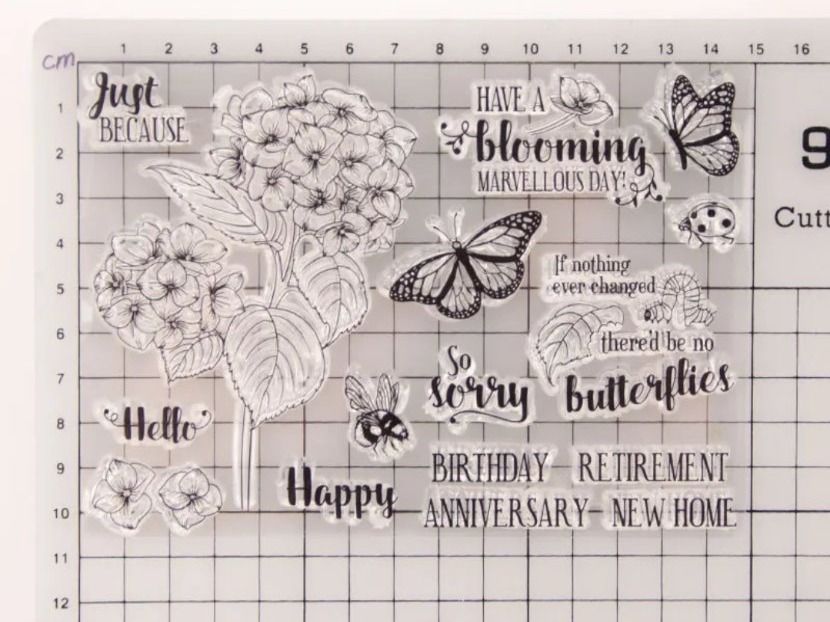 cm
1 2 3 4 5 6 7 8 9 10 11 12 13 14 15 16
1
2
3
4
5
6
7
8
9
10
11
12
Just
BECAUSE
HAVE A
blooming
MARVELLOUS DAY!
If nothing
ever changed
there'd be no
butterflies
So
sorry
Hello
Happy
BIRTHDAY RETIREMENT
ANNIVERSARY NEW HOME
9
Cutt